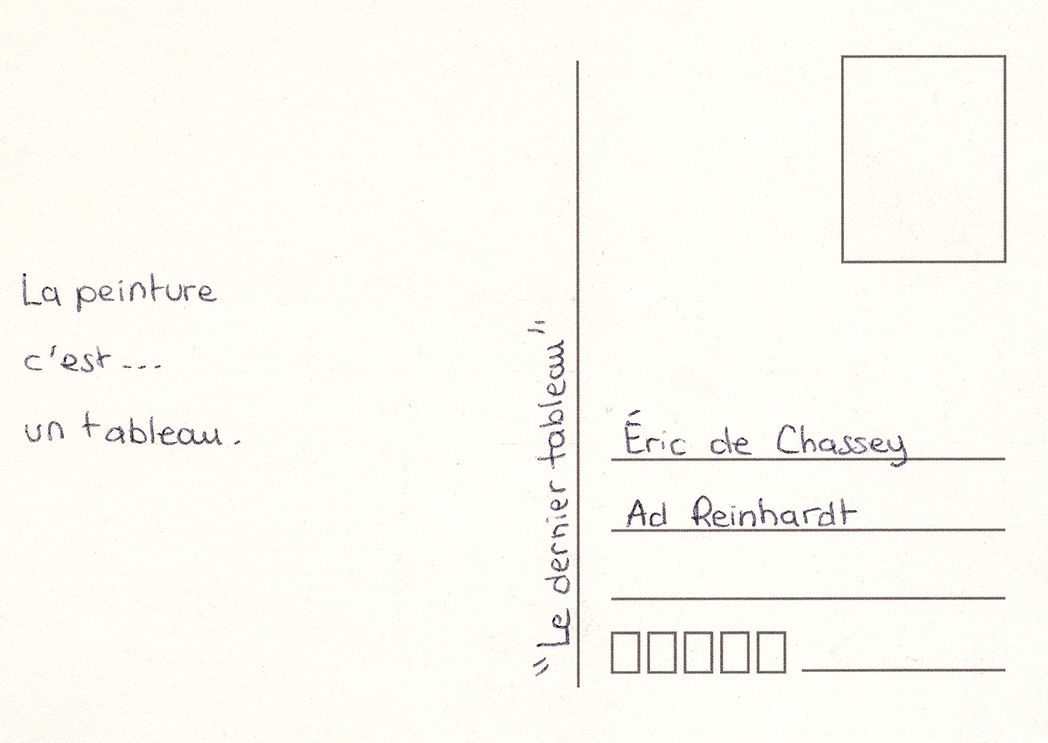 La peinture
c'est...
un tableau.
"Le dernier tableau"
Éric de Chassey
Ad Reinhardt